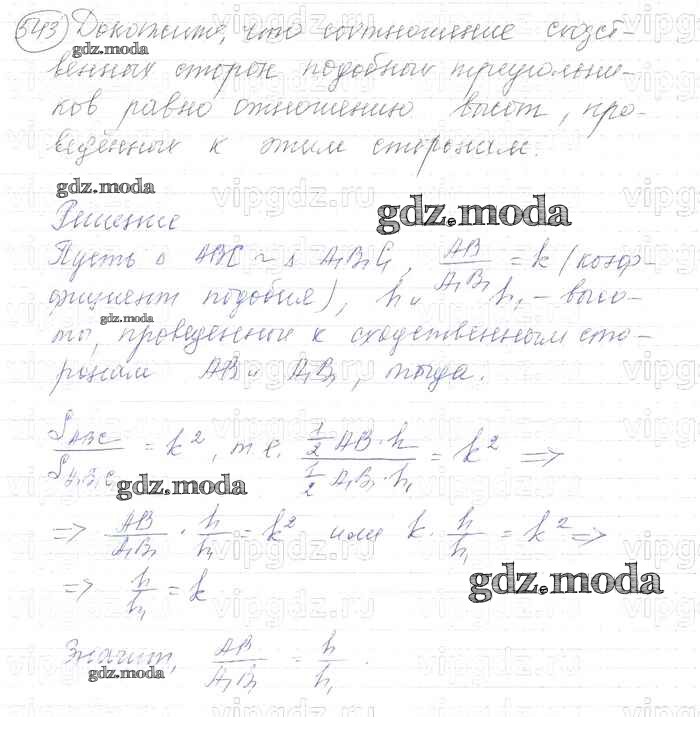 543 Докажите, что соотношение сходст-
gdz.moda
венных сторон подобных треугольни-
ков равно отношению высот, про-
ведённых к этим сторонам.
gdz.moda
Решение
gdz.moda
Пусть △ ABC ~ △ A₁B₁C₁, AB/A₁B₁ = k (коэф-
фициент подобия), h и h₁ - высо-
gdz.moda
ты, проведенные к сходственным сто-
ронам AB и A₁B₁, тогда.
S_ABC/S_A₁B₁C₁ = k², т.е. (1/2 AB · h)/(1/2 A₁B₁ · h₁) = k² =>
gdz.moda
=> AB/A₁B₁ · h/h₁ = k² или k · h/h₁ = k² =>
=> h/h₁ = k
gdz.moda
Значит, AB/A₁B₁ = h/h₁.
gdz.moda